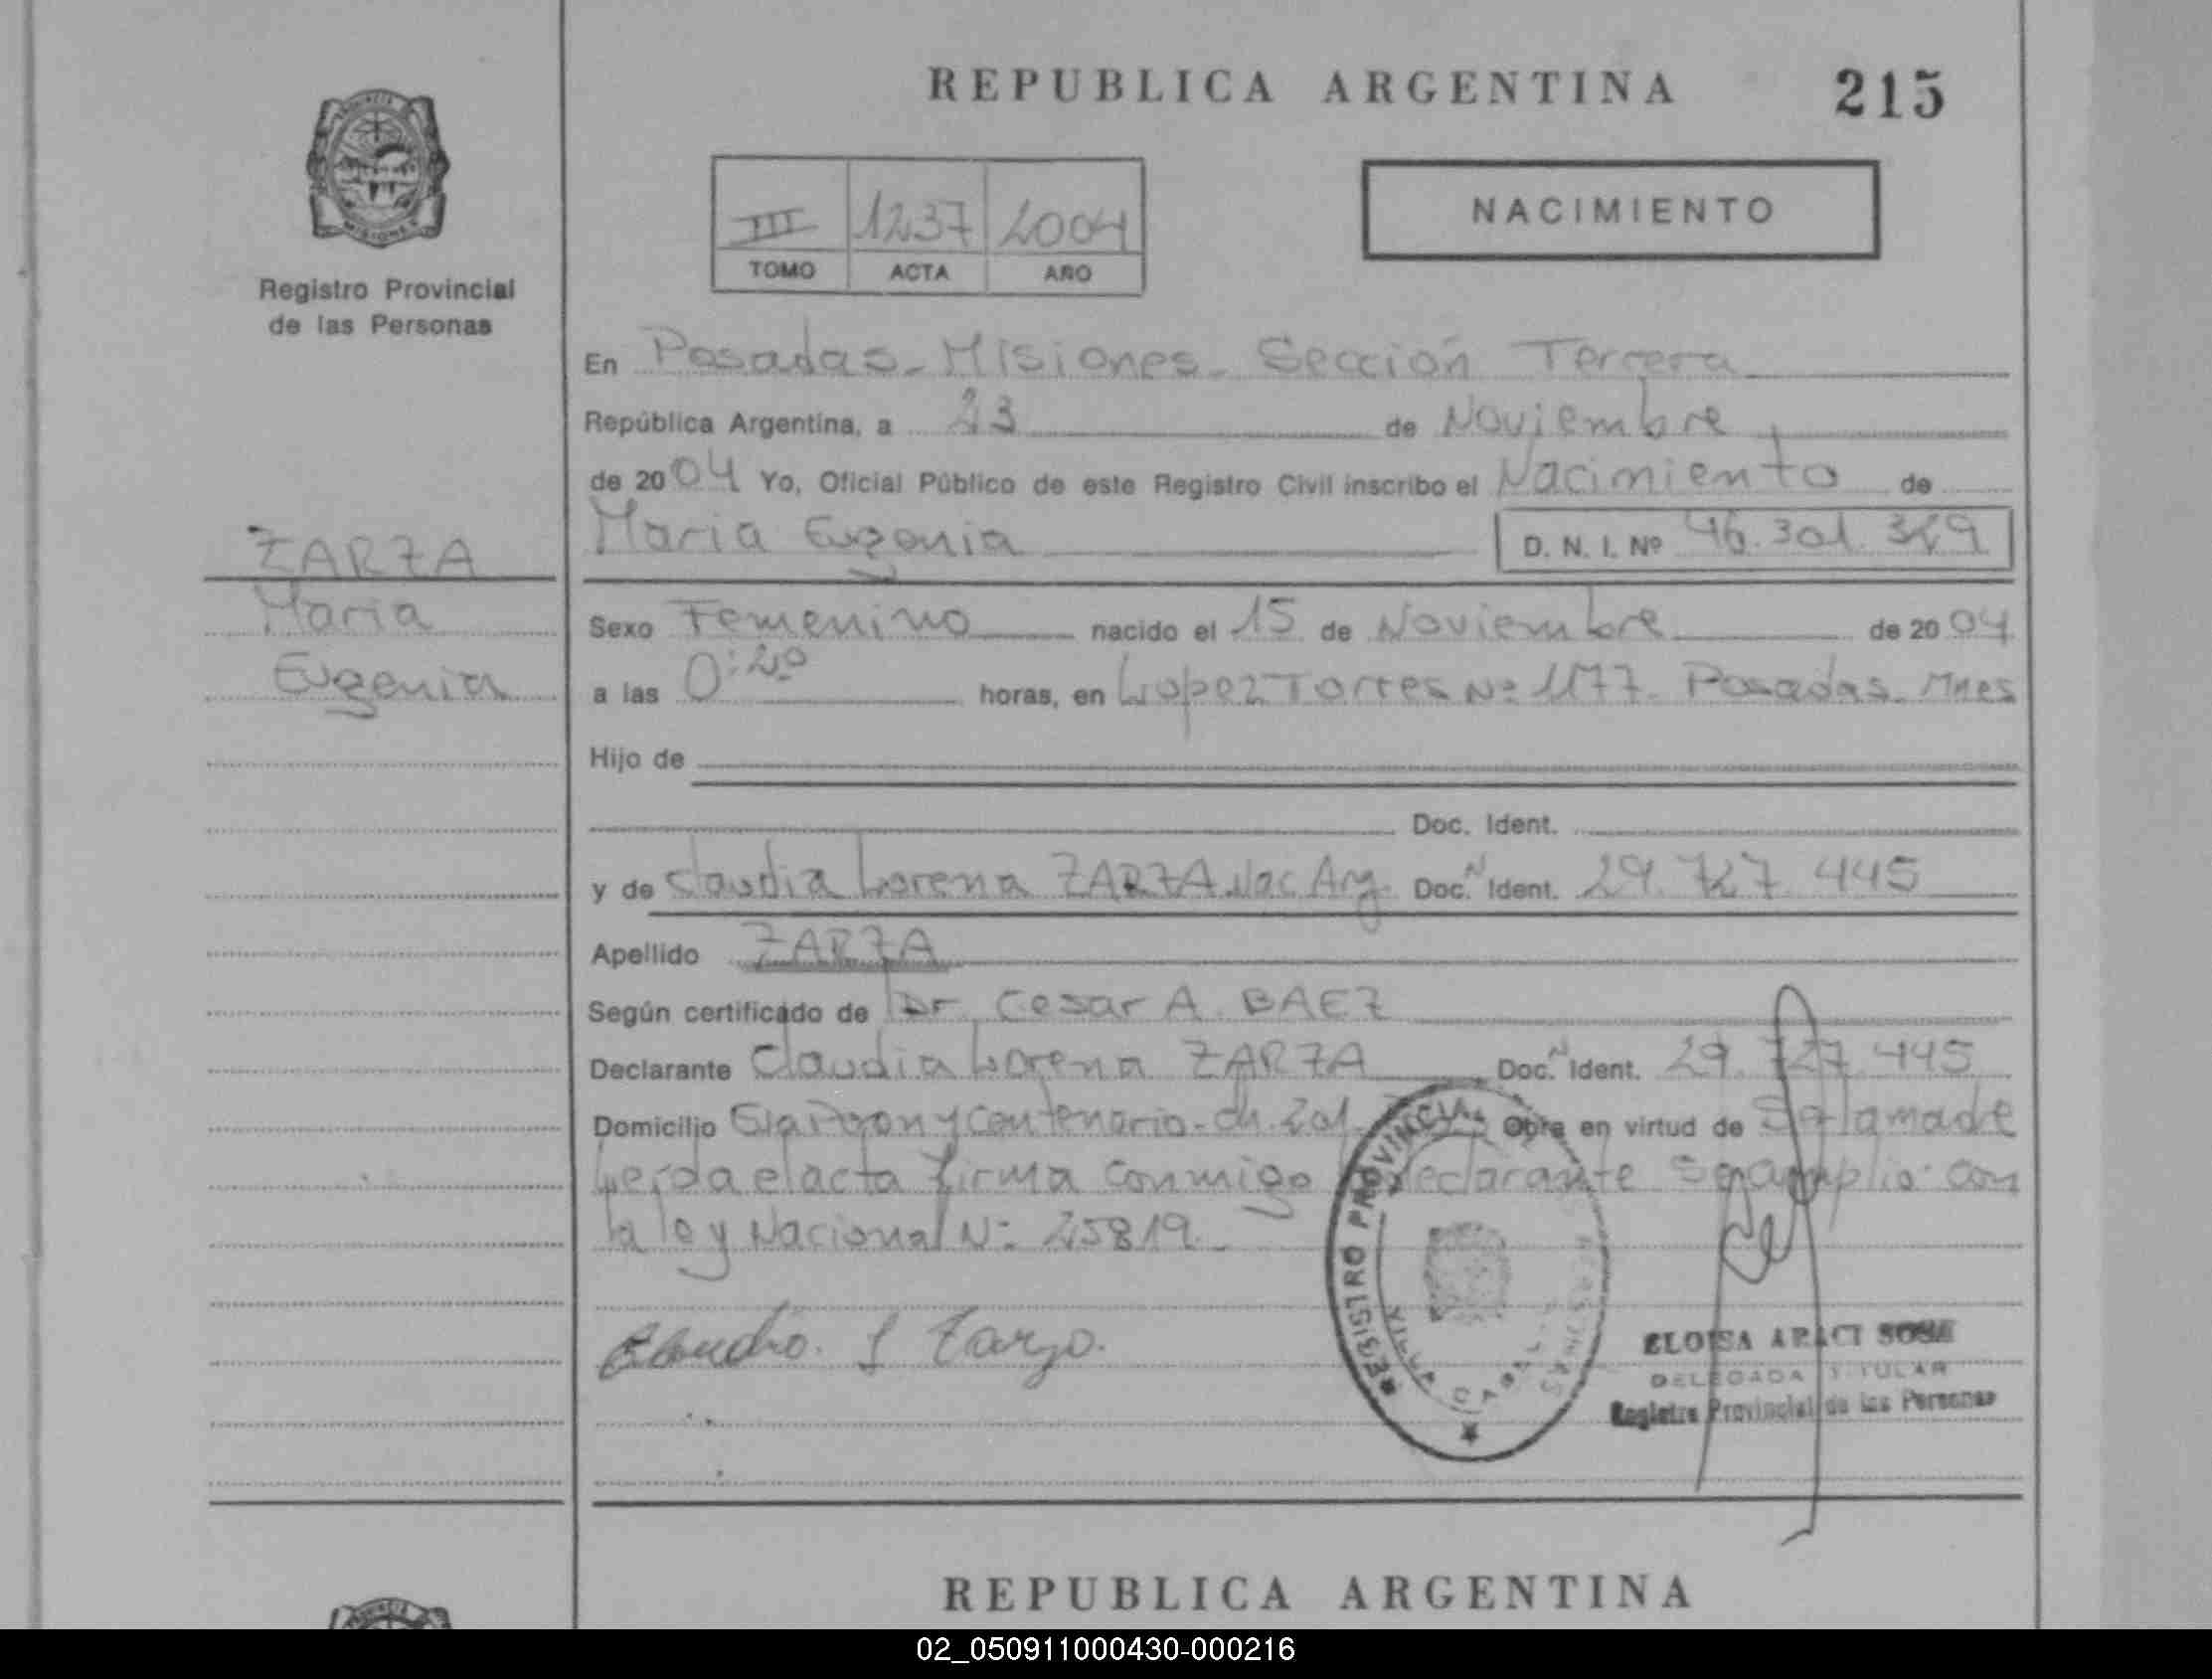 REPUBLICA ARGENTINA 215
PROVINCIA
MISIONES
Registro Provincial
de las Personas
III 1237 2004
TOMO ACTA AÑO
NACIMIENTO
En Posadas - Misiones - Sección Tercera
República Argentina, a 23 de Noviembre
de 2004 Yo, Oficial Público de este Registro Civil inscribo el Nacimiento de
ZARZA
Maria Eugenia D. N. I. Nº 46.301.329
Maria
Eugenia
Sexo Femenino nacido el 15 de Noviembre de 2004
a las 0:20 horas, en Lopez Torres Nº 1177 - Posadas - Mnes
Hijo de
Doc. Ident.
y de Claudia Lorena ZARZA Nac Arg. Doc. N Ident. 29.727.445
Apellido ZARZA
Según certificado de Dr. Cesar A. BAEZ
Declarante Claudia Lorena ZARZA Doc. N Ident. 29.727.445
Domicilio y Centenario - ch. 201 Obra en virtud de la madre
Leída el acta firma conmigo declarante Se amplio con
la ley Nacional Nº 25819 -
Claudia. L Zarza.
REGISTRO PROVINCIAL PERSONAS
VILLA CABELLO
ELOISA ARACI SOSA
DELEGADA TITULAR
Registro Provincial de las Personas
REPUBLICA ARGENTINA
02_050911000430-000216